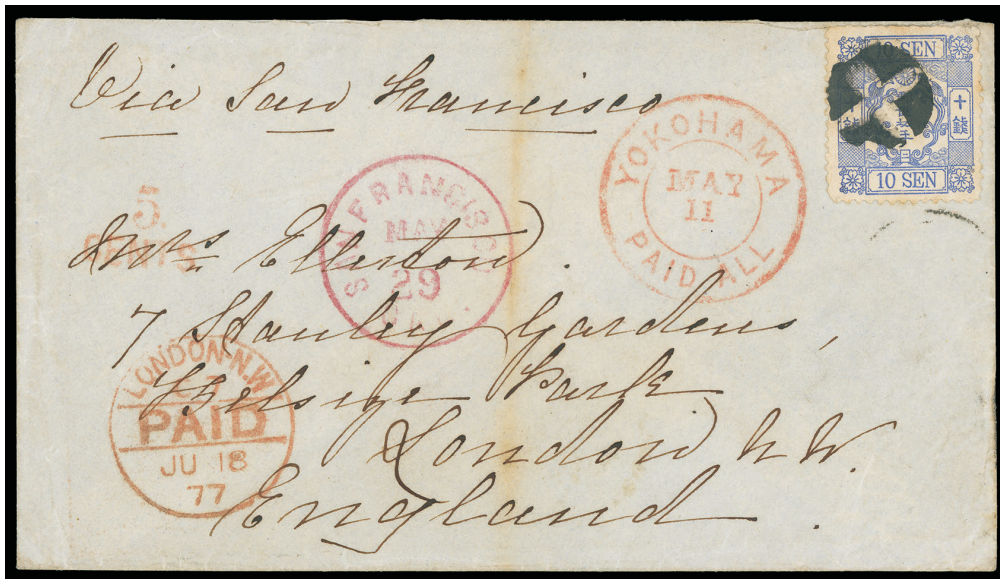 Via San Francisco
10 SEN
十錢
10 SEN
YOKOHAMA
MAY
11
PAID ALL
SAN FRANCISCO
MAY
29
5
CENTS
Mrs Ellerton
7 Stanley Gardens,
Belsize Park
London N.W.
England.
LONDON.N.W
PAID
JU 18
77